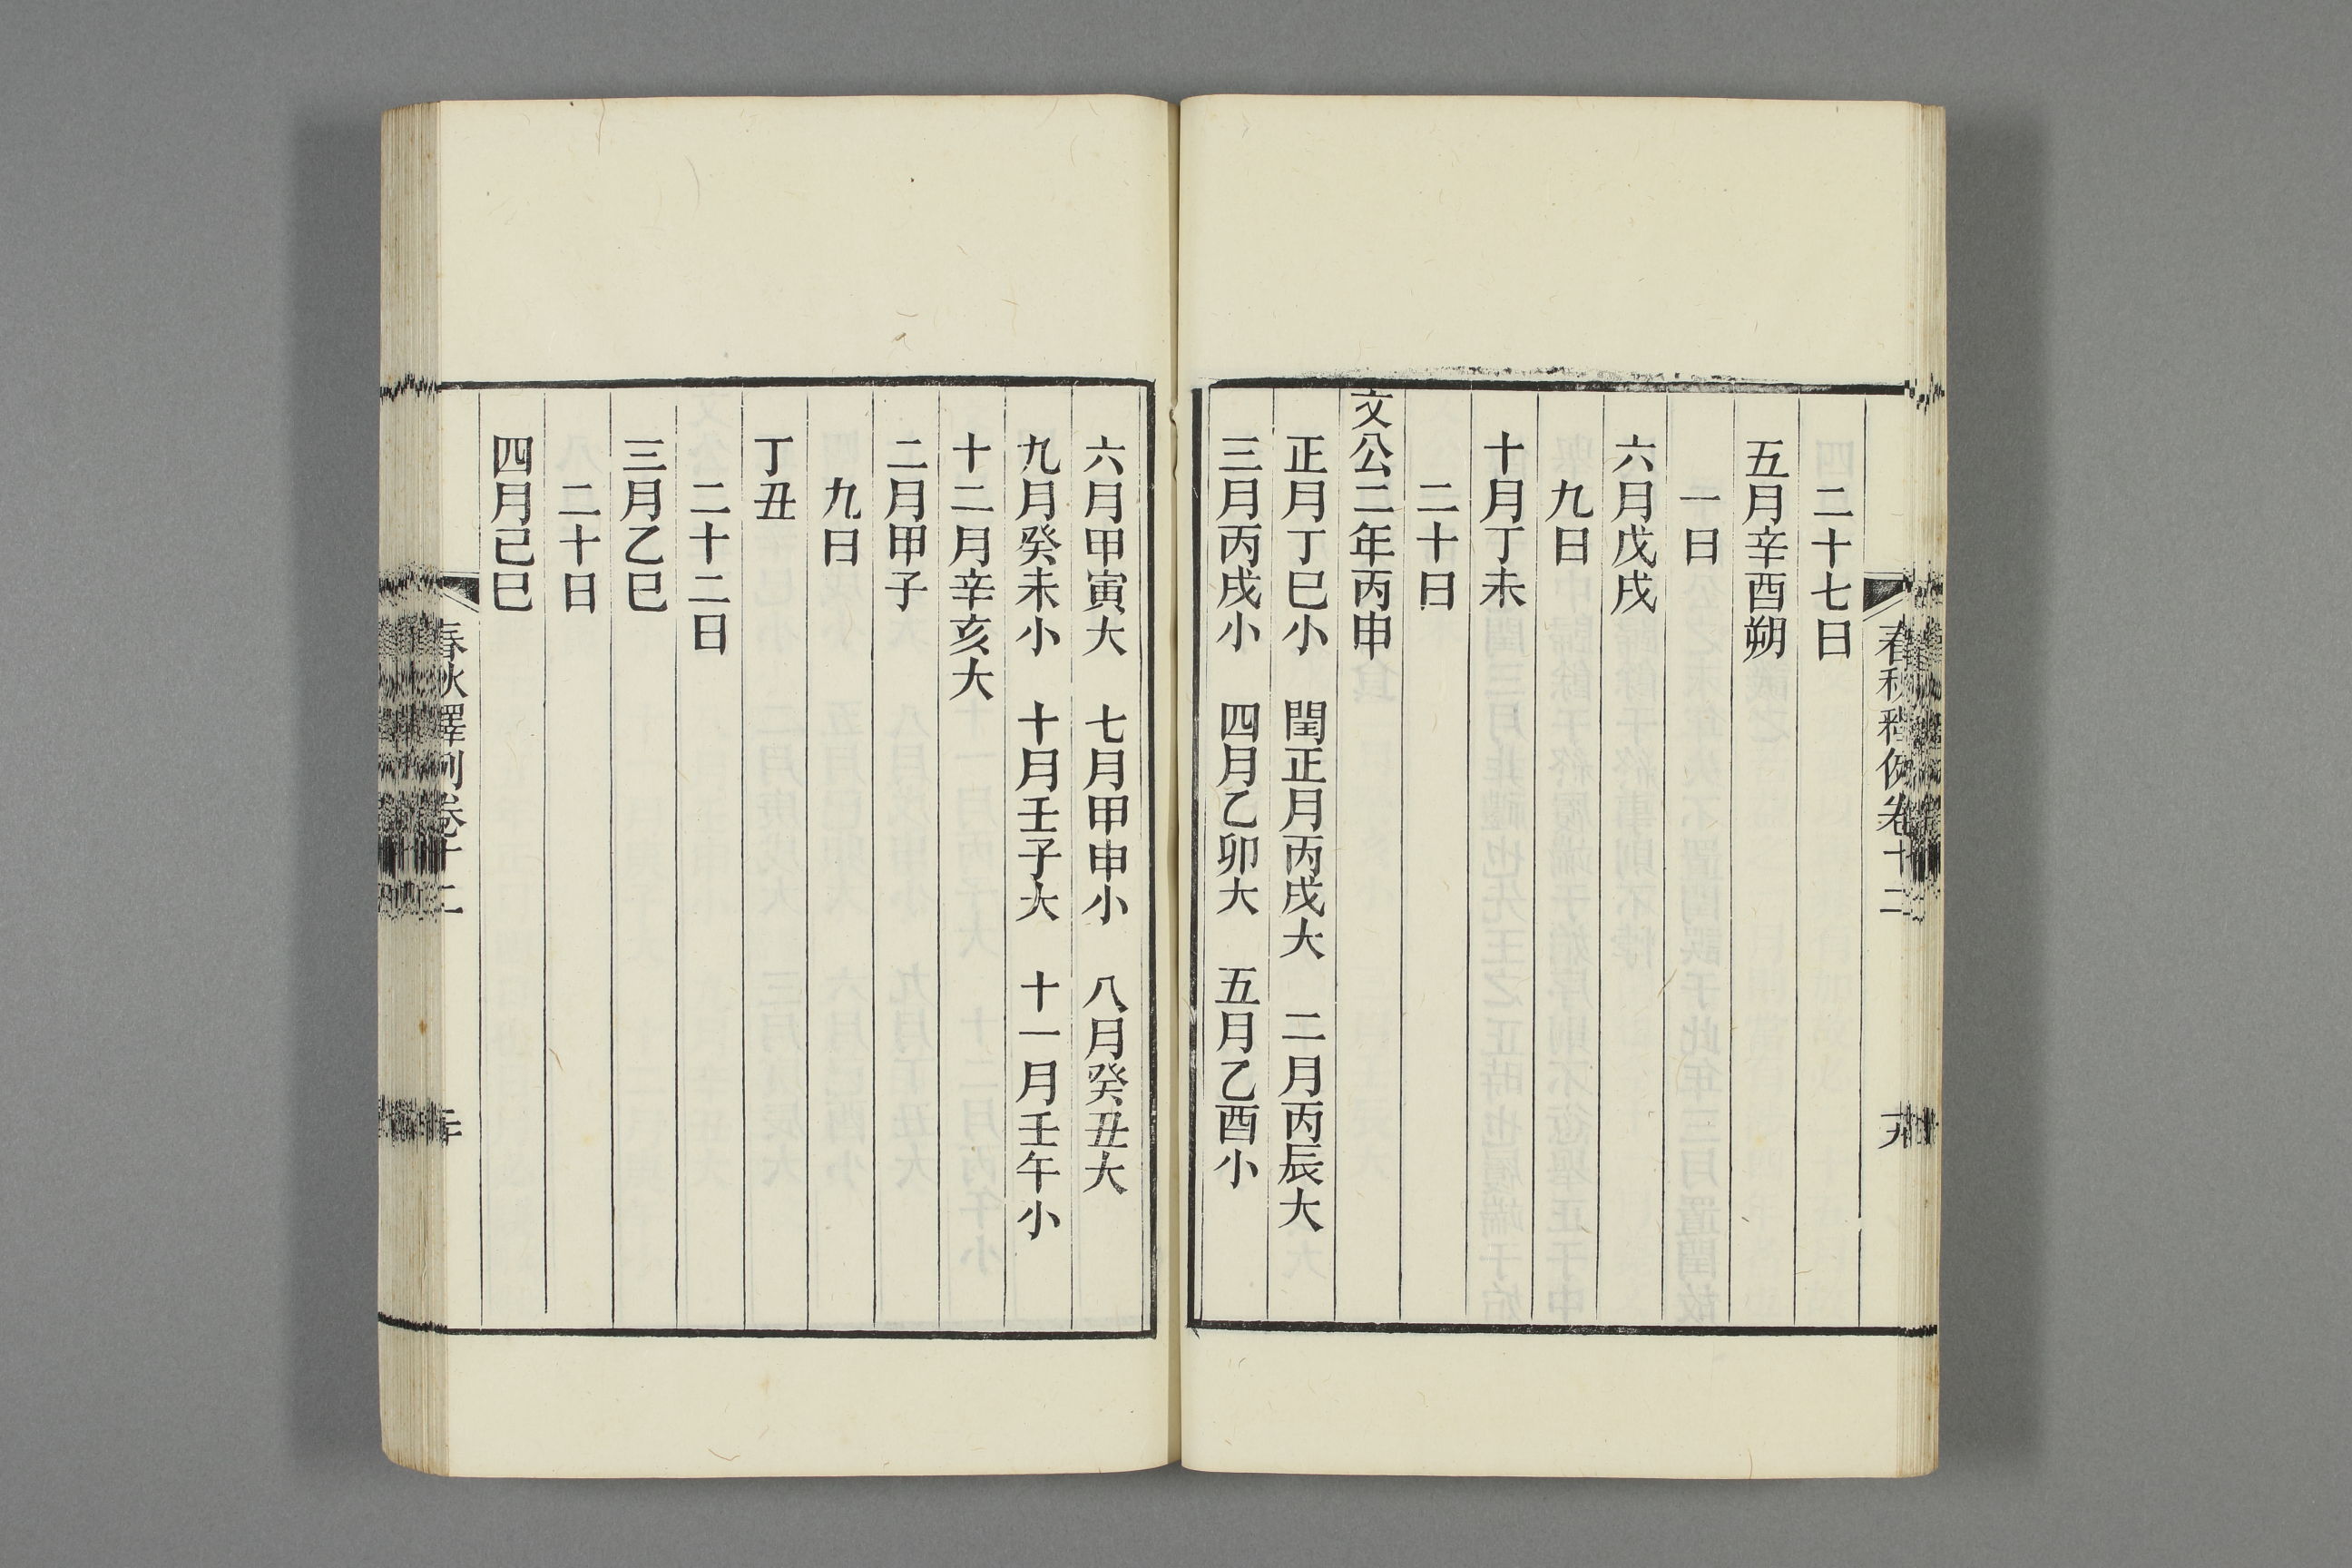 春秋釋例卷十二
二十七日
五月辛酉朔
一日
六月戊戌
九日
十月丁未
二十日
文公二年丙申
正月丁巳小　閏正月丙戌大　二月丙辰大
三月丙戌小　四月乙卯大　五月乙酉小
六月甲寅大　七月甲申小　八月癸丑大
九月癸未小　十月壬子大　十一月壬午小
十二月辛亥大
二月甲子
九日
丁丑
二十二日
三月乙巳
二十日
四月己巳
春秋釋例卷十二